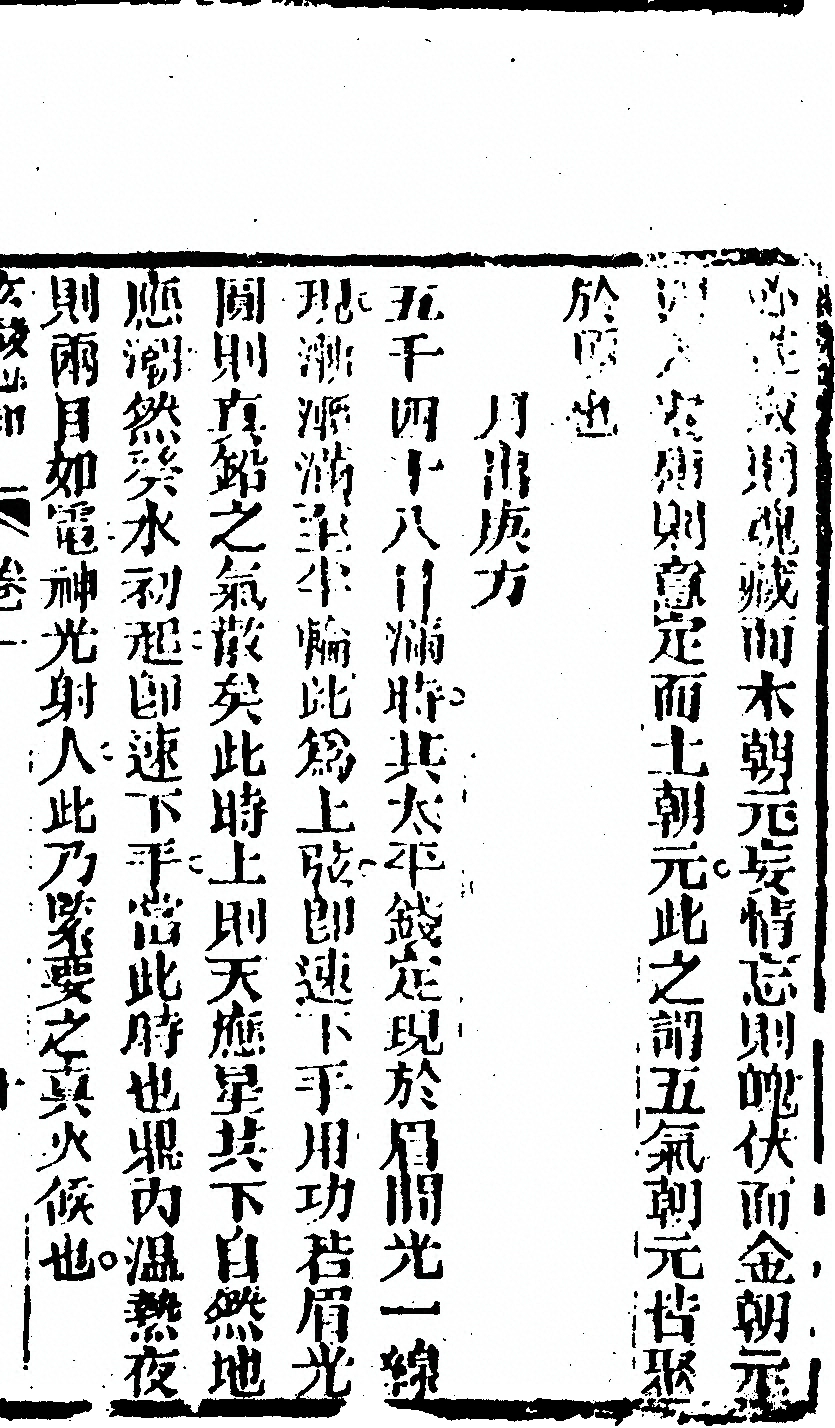 心
寂則魂藏而木朝元妄情忘則魄伏而金朝元
則意定而土朝元此之謂五氣朝元皆聚
於也
月出庚方
五千四十八日滿時其太平錢定現於眉間光一線
現漸漸滿至半輪此為上弦卽速下手用功若眉光
圓則真鉛之氣散矣此時上則天應星其下自然地
應潮然癸水初起卽速下手當此時也鼎內溫熱夜
則兩目如電神光射人此乃緊要之真火候也
卷一
十